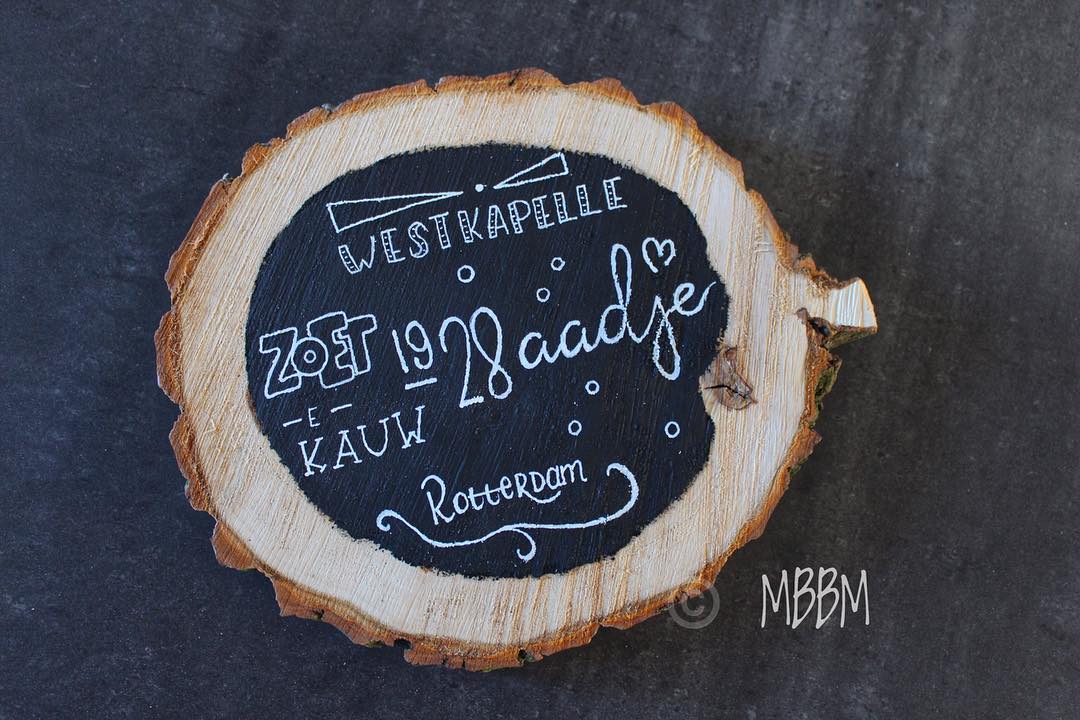 WESTKAPELLE
ZOET 1928 aadje
-E-
KAUW
Rotterdam
© MBBM